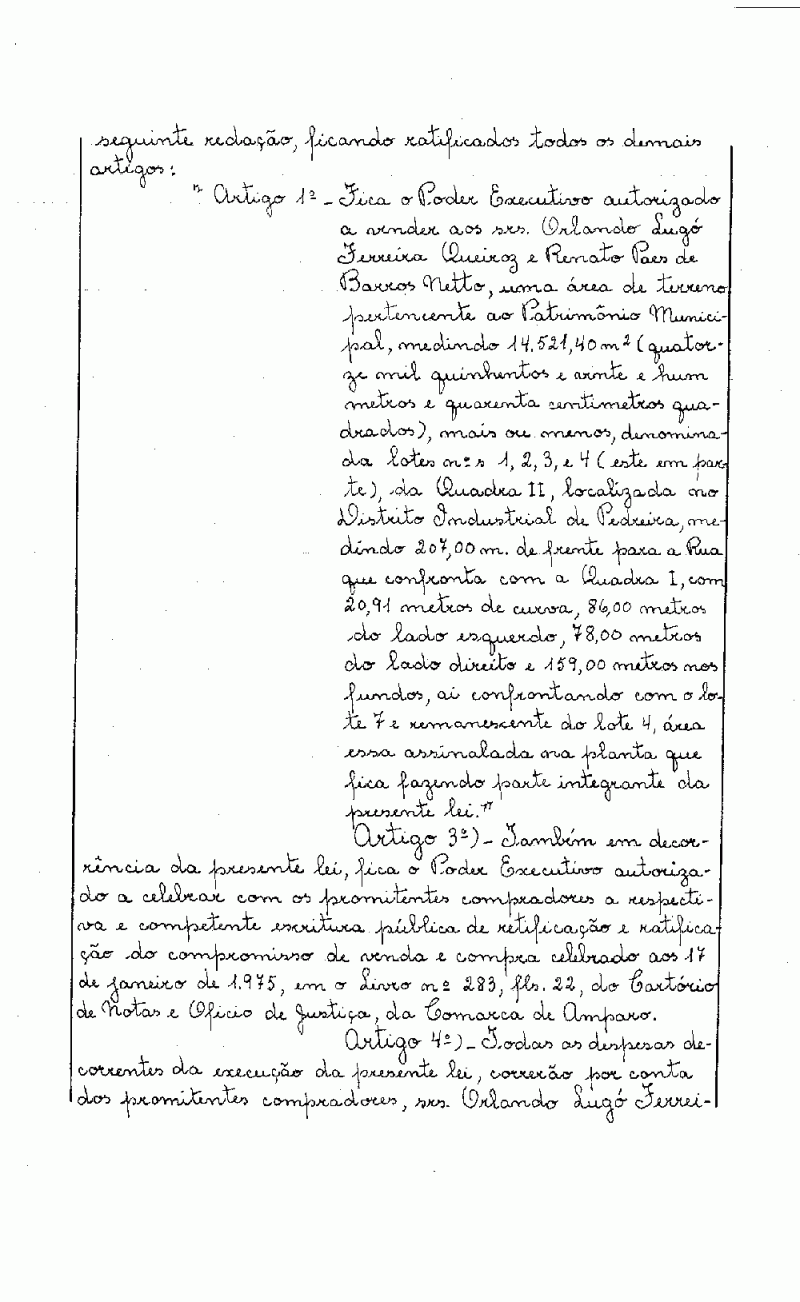 seguinte redação, ficando ratificados todos os demais
artigos:
" Artigo 1º - Fica o Poder Executivo autorizado
a vender aos srs. Orlando Lugó
Ferreira Queiroz e Renato Paes de
Barros Netto, uma área de terreno
pertencente ao Patrimônio Munici-
pal, medindo 14.521,40 m² (quator-
ze mil quinhentos e vinte e hum
metros e quarenta centimetros qua-
drados), mais ou menos, denomina-
da lotes nºs 1, 2, 3, e 4 (este em par-
te), da Quadra II, localizada no
Distrito Industrial de Pedreira, me-
dindo 207,00 m. de frente para a Rua
que confronta com a Quadra I, com
20,91 metros de curva, 86,00 metros
do lado esquerdo, 78,00 metros
do lado direito e 159,00 metros nos
fundos, ai confrontando com o lo-
te 7 e remanescente do lote 4, área
essa assinalada na planta que
fica fazendo parte integrante da
presente lei."
Artigo 3º) - Também em decor-
rência da presente lei, fica o Poder Executivo autoriza-
do a celebrar com os promitentes compradores a respecti-
va e competente escritura pública de retificação e ratifica-
ção do compromisso de venda e compra celebrado aos 17
de janeiro de 1.975, em o Livro nº 283, fls. 22, do Cartório
de Notas e Oficio de Justiça, da Comarca de Amparo.
Artigo 4º) - Todas as despesas de-
correntes da execução da presente lei, correrão por conta
dos promitentes compradores, srs. Orlando Lugó Ferrei-